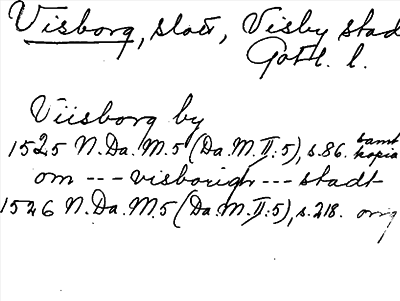 Visborg, slott, Visby stad
Gotl. l.
Viisborg by
1525 N.Da.M.5 (Da.M.II:5), s.86. samt kopia
om --- visborigh --- stadt
1526 N.Da.M.5 (Da.M.II:5), s.218. orig